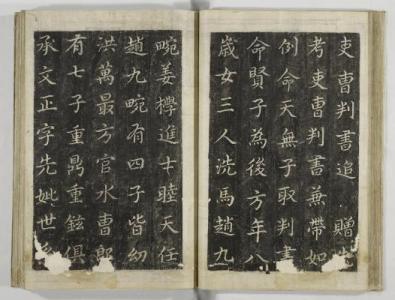 吏曹判書追贈
考吏曹判書兼帶如
例命天無子取判書
命賢子為後方年八
歲女三人洗馬趙九
畹姜欅進士睦天任
趙九畹有四子皆幼
洪萬最方官水曹郎
有七子重鼎重鉉俱
承文正字先妣世